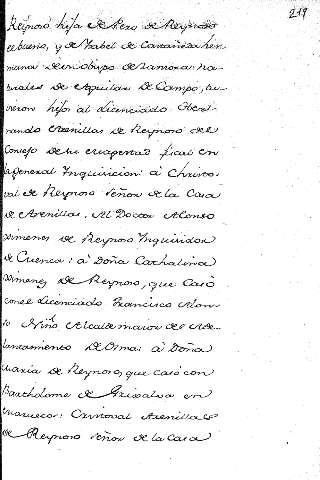 219
Reynoso hija de Pero de Reynoso
el bueno, y de Ysabel de Carrañiza her
mana de un obispo de Zamora na
turales de Aguilar de Campo, tu
vieron hijo al Licenciado Hear
nando Arenillas de Reynoso del
Consejo de su Magestad fiscal en
la general Inquisicion: à Christo
val de Reynoso Señor de la Casa
de Arenillas. Al Doctor Alonso
Ximenes de Reynoso Inquisidor
de Cuenca: à Doña Cathalina
Ximenes de Reynoso, que casó
con el Licenciado Francisco Alon
so Niño Alcalde maior de el Ade
lantamiento De Osma: à Doña
Maria de Reynoso, que casó con
Bartholome de Grixalva en
Marruecos: Cristoval Arenillas
de Reynoso Señor de la Casa